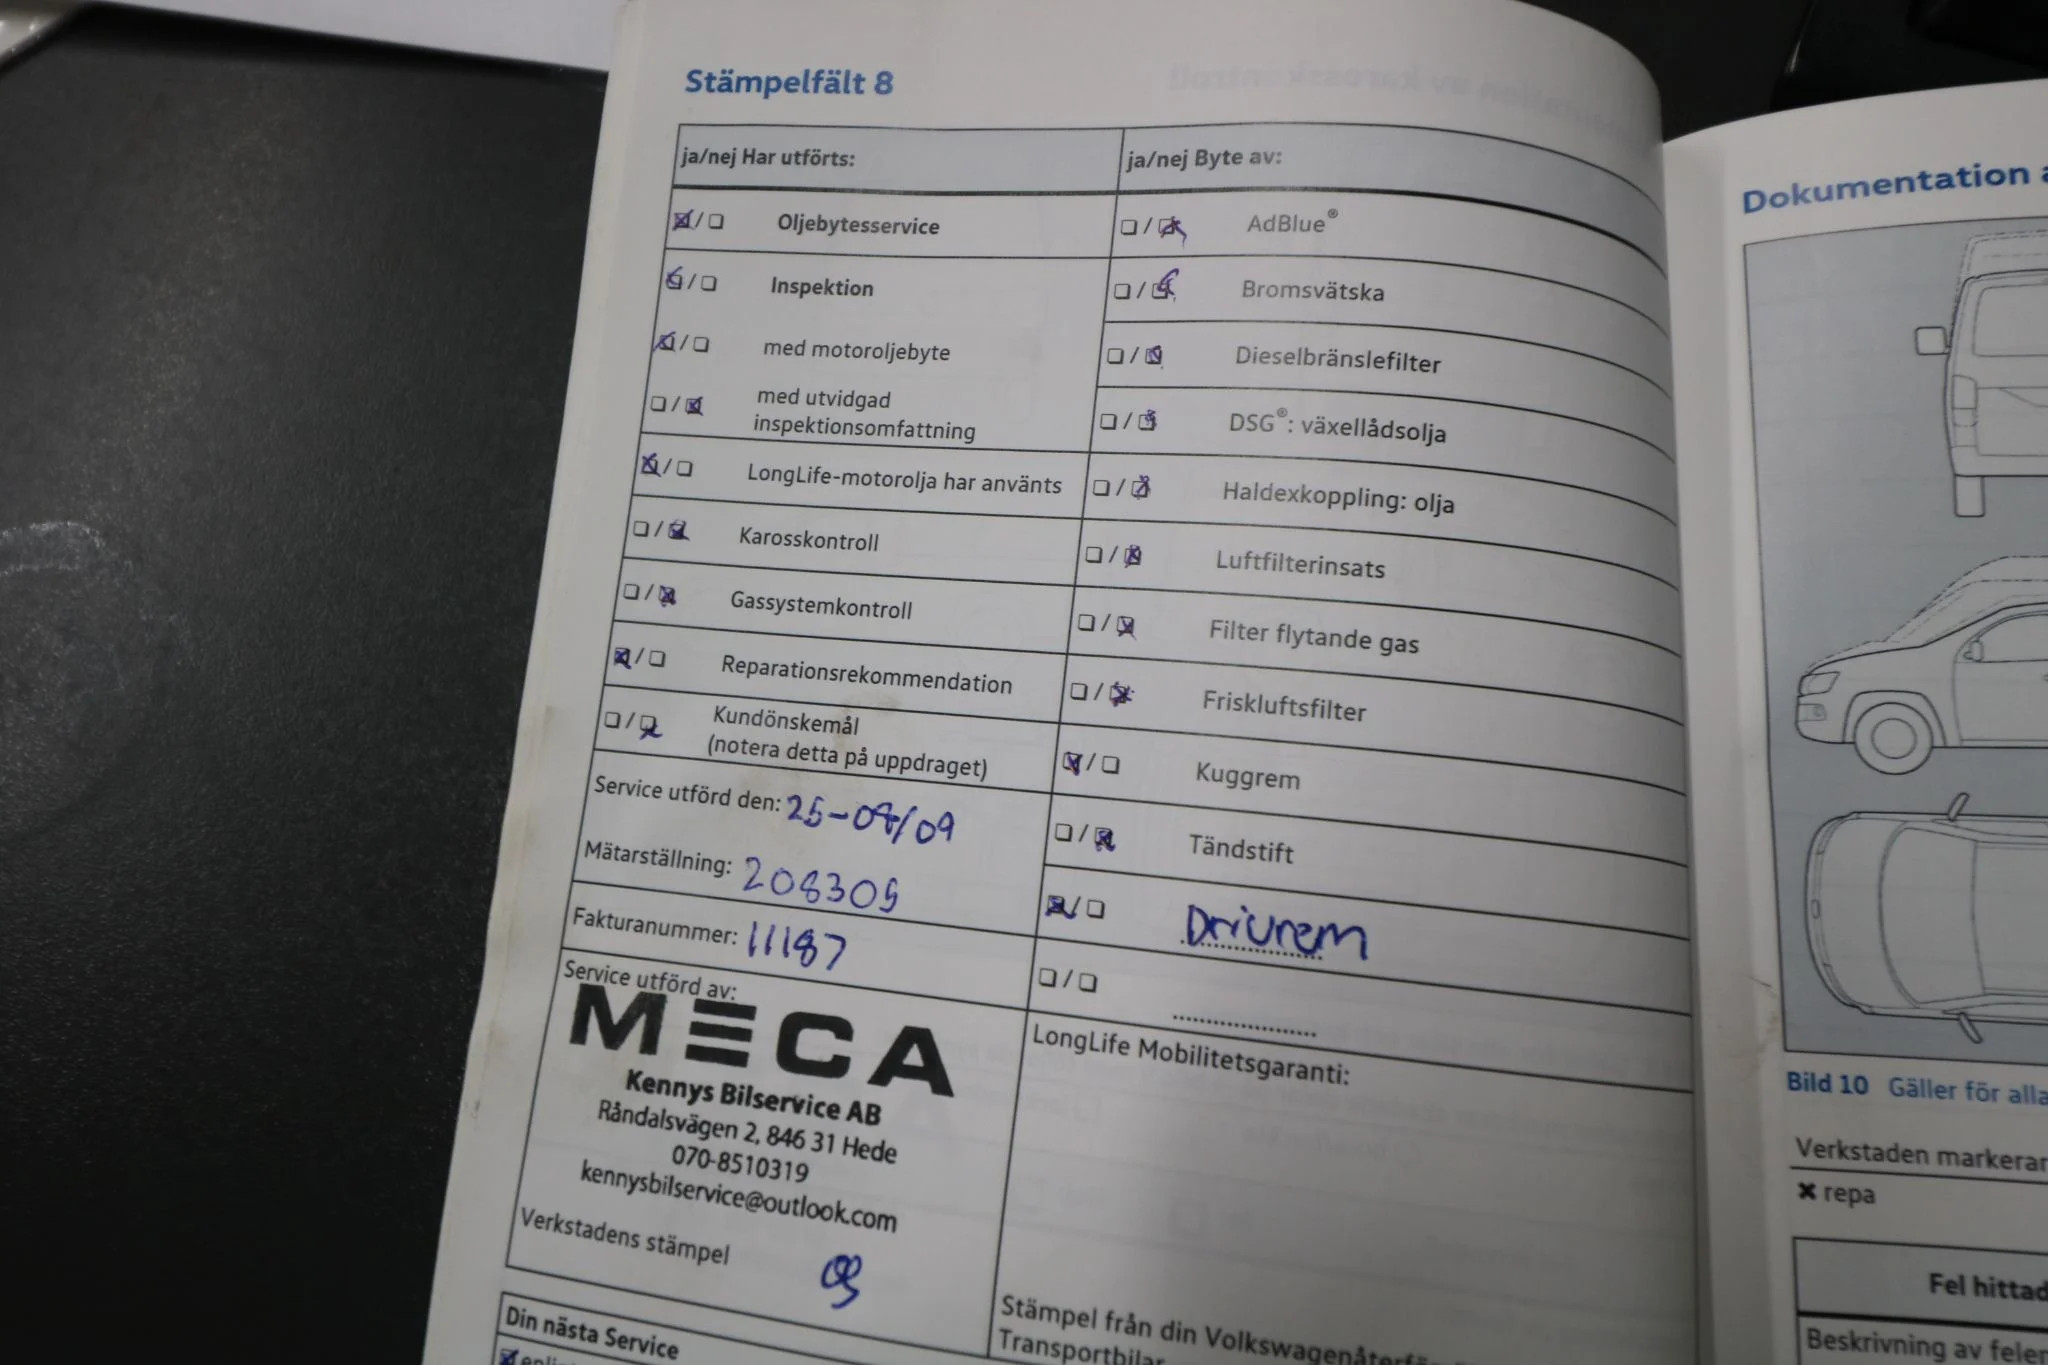 Stämpelfält 8
ja/nej Har utförts:
ja/nej Byte av:
Oljebytesservice
AdBlue®
Inspektion
Bromsvätska
med motoroljebyte
Dieselbränslefilter
med utvidgad
inspektionsomfattning
DSG®: växellådsolja
LongLife-motorolja har använts
Haldexkoppling: olja
Karosskontroll
Luftfilterinsats
Gassystemkontroll
Filter flytande gas
Reparationsrekommendation
Friskluftsfilter
Kundönskemål
(notera detta på uppdraget)
Kuggrem
Service utförd den: 25-07/09
Tändstift
Mätarställning: 208305
Drivrem
Fakturanummer: 11187
Service utförd av:
MECA
Kennys Bilservice AB
Råndalsvägen 2, 846 31 Hede
070-8510319
kennysbilservice@outlook.com
Verkstadens stämpel
LongLife Mobilitetsgaranti:
Stämpel från din
Transportbilar
Din nästa Service
Dokumentation
Bild 10 Gäller för alla
Verkstaden markerar
repa
Fel hittad
Beskrivning av felen